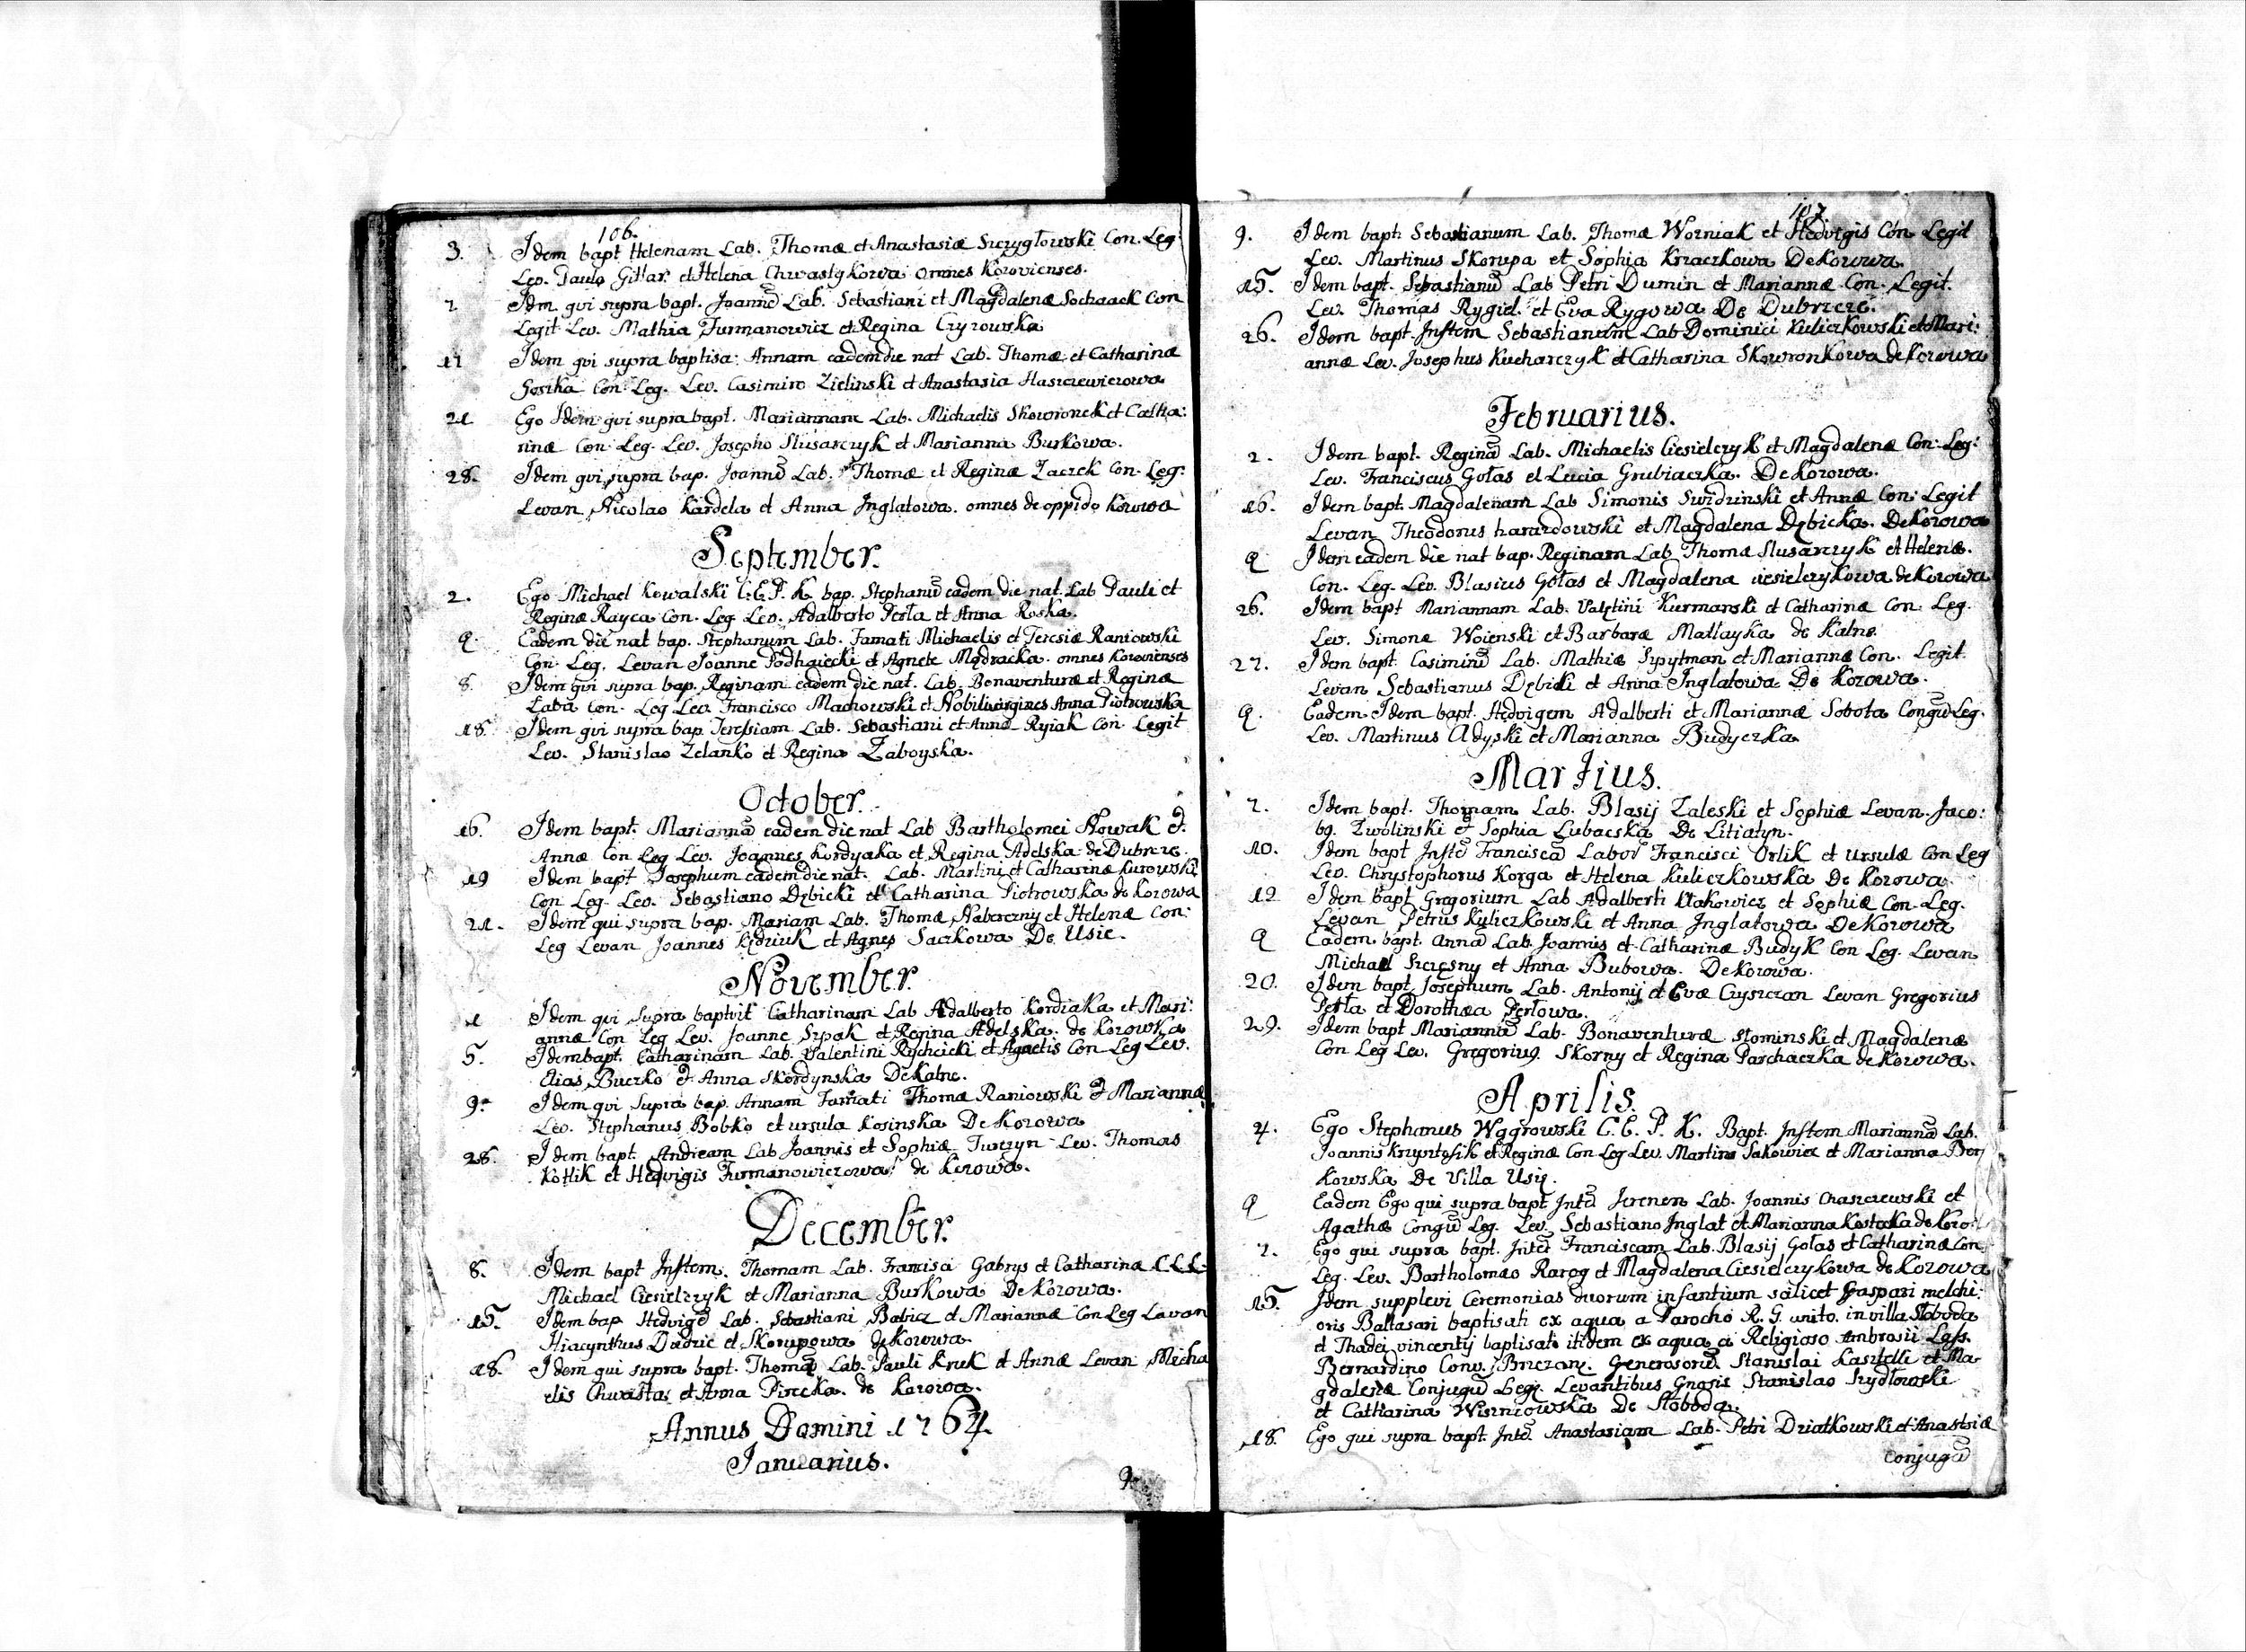 106.
3. Idem bapt Helenam Lab. Thomæ et Anastasiæ Szczygłowski Con. Leg:
Lev. Paulo Gitlar. et Helena Chwastykowa omnes Korovienses.
7 Idm qvi supra bapt. Joannē Lab. Sebastiani et Magdalenæ Sochaack Con
Legit Lev. Mathia Furmanowicz et Regina Czyzowska
11 Idem qvi supra baptisa: Annam eadem die nat Lab. Thomæ et Catharinæ
Gosika Con: Leg. Lev. Casimiro Zielinski et Anastasia Haszczewiczowa
21 Ego Idem qvi supra bapt. Mariannam Lab. Michaelis Skowronek et Catha:
rinæ Con: Leg. Lev. Josepho Slusarczyk et Marianna Burkowa.
28. Idem qvi supra bap. Joannē Lab. Thomæ et Reginæ Zaczek Con. Leg:
Levan Nicolao Kardela et Anna Inglatowa. omnes de oppido Kowwa
September.
2. Ego Michael Kowalski C. E. P. K bap. Stephanū eadem die nat. Lab Pauli et
Reginæ Rayca Con. Leg Lev. Adalberto Perła et Anna Roska.
Q. Eadem die nat bap. Stephanum Lab. Famati Michaelis et Teresiæ Raniowski
Con: Leg. Levan Joanne Podhaiecki et Agnete Mądracka. omnes Korovienses
8. Idem qvi supra bap. Reginam eadem die nat. Lab. Bonaventuræ et Reginæ
Łaba Con. Leg Lev. Francisco Machowski et Nobili virgines Anna Piotrowska
18 Idem qvi supra bap Teressiam Lab. Sebastiani et Annæ Ryiak Con Legit
Lev. Stanislao Zelanko et Regina Zaboyska.
October.
16. Idem bapt. Mariannā eadem die nat Lab Bartholomei Nowak &
Annæ Con Leg Lev. Joannes Kordyaka et Regina Adelska de Dubrzc.
19 Idem bapt Josephum eadem die nat. Lab. Martini et Catharinæ Kurowski
Con Leg Lev. Sebastiano Dębicki et Catharina Piotrowska de Korowa
21. Idem qui supra bap. Mariam Lab. Thomæ Naberezny et Helenæ Con:
Leg Levan Joannes Kędziuk et Agnes Saczkowa De Usie.
November.
1 Idem qui supra baptvit Catharinam Lab Adalberto Kordiaka et Mari:
annæ Con Leg Lev. Joanne Szpak et Regina Adelska. de Korowka
5. Idem bapt. Catharinam Lab. Valentini Rychcicki et Agnetis Con Leg Lev.
Elias Buczko & Anna Skordynska De Katne.
9. Idem qvi supra bap. Annam Famati Thomæ Raniowski & Mariannæ
Lev. Stephanus Bobko et ursula Kosinska De Korowa
28. Idem bapt. Andream Lab Joannis et Sophiæ Tuczyn Lev. Thomas
Kotlik et Hedvigis Furmanowiczowa de Korowa.
December.
8. Idem bapt Inftem. Thomam Lab. Francisci Gabrys et Catharina C. L. L.
Michael Ciesielczyk et Marianna Burkowa De Korowa.
15. Idem bap Hedvigē Lab. Sebastiani Babicz et Mariannæ Con Leg Lavan
Hiacynthus Dudric et Skorupowa de Korowa
18. Idem qui supra bapt. Thomā Lab. Pauli Kruk et Annæ Levan Micha
elis Chwasta et Anna Pirecka. de Korowa.
Annus Domini 1764.
Januarius.
9.
107
9. Idem bapt. Sebastianum Lab. Thomæ Wozniak et Hedvigis Con Legit
Lev. Martinus Skorupa et Sophia Krzaczkowa De Korowa.
15. Idem bapt. Sebastianū Lab Petri Dumin et Mariannæ Con. Legit.
Lev. Thomas Rygiel. et Eva Rygowa De Dubrzeze.
26. Idem bapt. Inftem Sebastianum Lab Dominici Kuliczkowski et Mari:
annæ Lev. Josephus Kucharczyk et Catharina Skowronkowa de Korowa
Februarius.
2. Idem bapt. Reginā Lab. Michaelis Ciesielczyk et Magdalenæ Con: Leg:
Lev. Franciscus Gołas et Lucia Grubiaczka. De Korowa.
16. Idem bapt. Magdalenam Lab Simonis Swidzinski et Annæ Con: Legit
Levan Theodorus harazdowski et Magdalena Dębicka. De Korowa
Q Idem eadem die nat bap. Reginam Lab Thomæ Slusarczyk et Helenæ.
Con. Leg. Lev. Blasius Gołas et Magdalena ciesielczykowa de Korowa
26. Idem bapt Mariannam Lab. Valętini Kurmanski et Catharinæ Con Leg.
Lev. Simone Woienski et Barbara Matlayka de Katne
27. Idem bapt Casimirū Lab. Mathiæ Szpytman et Mariannæ Con. Legit.
Levan Sebastianus Dębicki et Anna Inglatowa De Korowa.
Q. Eadem Idem bapt. Hedvigem Adalberti et Mariannæ Sobota Congū Leg.
Lev. Martinus Adyski et Marianna Budyczka
Martius.
7. Idem bapt. Thomam Lab. Blasij Zaleski et Sophiæ Levan. Jaco:
bg. Zwolinski & Sophia Lubacska De Litiatyn.
10. Idem bapt Inftē Franciscā Labor Francisci Orlik et Ursulæ Con Leg
Lev. Chrystophorus Korga et Helena Kuliczkowska De Korowa.
12 Idem bapt Gregorium Lab Adalberti Makowicz et Sophiæ Con. Leg.
Levan Petrus Kuliczkowski et Anna Inglatowa De Korowa
Q Eadem bapt. Annā Lab Joannis et Catharinæ Budyk Con Leg. Levan
Michael Szczęsny et Anna Bubowa. De Korowa.
20. Idem bapt. Josephum Lab. Antonij et Evæ Czyszczon Levan Gregorius
Perła et Dorothæa Perłowa.
29. Idem bapt Mariannā Lab. Bonaventuræ Słominski et Magdalenæ
Con Leg Lev. Gregorius Skorny et Regina Parchaczka de Korowa.
Aprilis.
4. Ego Stephanus Węgrowski C. E. P. K. Bapt. Inftem Mariannā Lab.
Joannis Krzysztofik et Reginæ Con Leg Lev. Martino Sakowicz et Marianna Ber
kowska De Villa Usię.
Q Eadem Ego qui supra bapt Intē Irenem Lab. Joannis Chaszczewski et
Agathæ Congū Leg. Lev. Sebastiano Inglat et Marianna Kostecka de Koro:
7. Ego qui supra bapt. Intē Franciscam Lab. Blasij Gołas et Catharinæ Con:
Leg. Lev. Bartholomæo Rarog et Magdalena Ciesielczykowa de Korowa
15. Idem supplevi Ceremonias duorum infantium scilicet Gaspari melchi:
oris Baltasari baptisati ex aqua a Parocho R. G. unito. in villa Słoboda
et Thadei vincentij baptisati itidem ex aqua a Religioso Ambrosii Lgfs.
Bernardino Conv. Brzezan. Generosorū Stanislai Kasztelli et Ma
gdalenæ Conjugū Legi. Levantibus Gnosis Stanislao Szydłowski
et Catharina Wiszniowska De Słoboda.
18. Ego qui supra bapt. Intē. Anastasiam Lab. Petri Dziatkowski et Anastsiæ
Conjugū